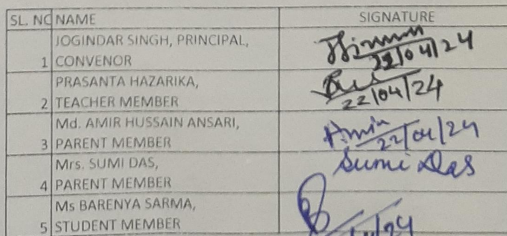 SL. NO NAME SIGNATURE
JOGINDAR SINGH, PRINCIPAL,
1 CONVENOR
22/04/24
PRASANTA HAZARIKA,
2 TEACHER MEMBER
22/04/24
Md. AMIR HUSSAIN ANSARI,
3 PARENT MEMBER
Amir
22/04/24
Mrs. SUMI DAS,
4 PARENT MEMBER
Sumi Das
Ms BARENYA SARMA,
5 STUDENT MEMBER